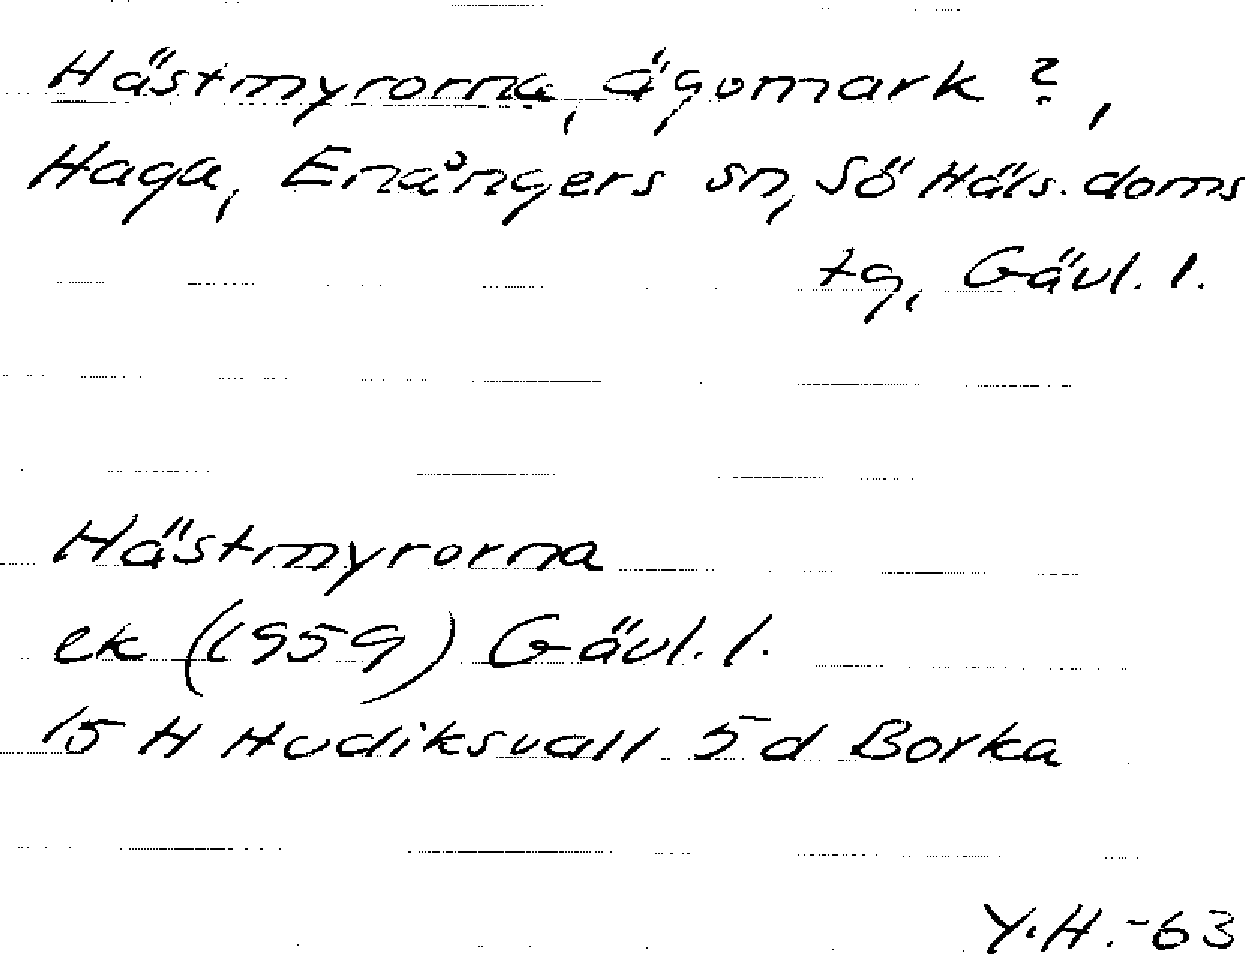 Hästmyrorna, ägomark?,
Haga, Enångers sn, Sö Häls. doms
tg, Gävl. l.
Hästmyrorna
ek (1959) Gävl. l.
15 H Hudiksvall 5 d Borka
Y.H.-63